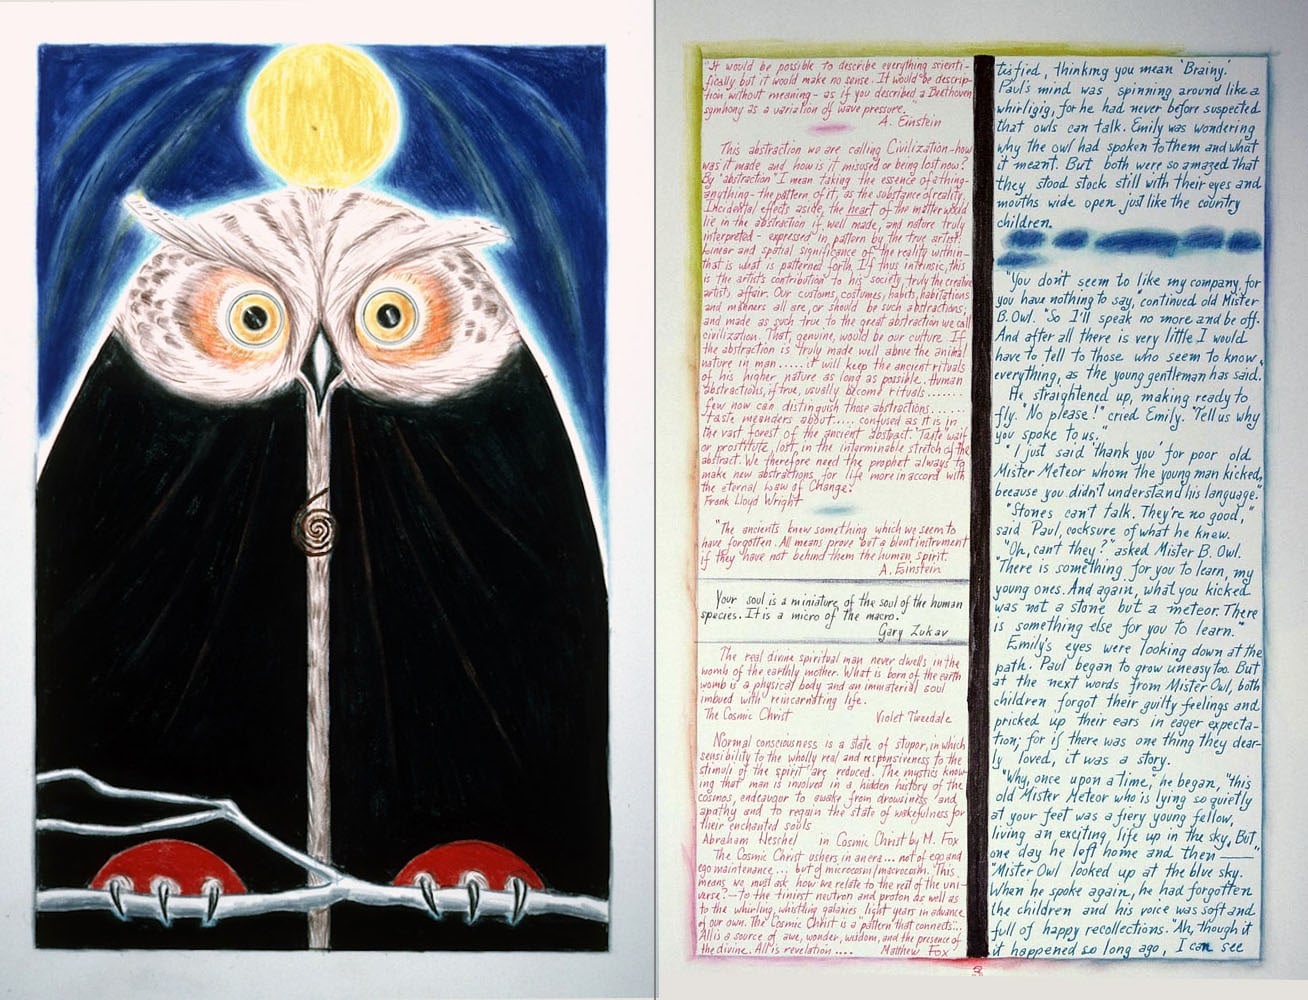 "It would be possible to describe everything scienti-
fically but it would make no sense. It would be descrip-
tion without meaning - as if you described a Beethoven
symhony as a variation of wave pressure."
A. Einstein
This abstraction we are calling Civilization - how
was it made and how is it misused or being lost now?
By "abstraction" I mean taking the essence of a thing-
anything - the pattern of it, as the substance of reality.
Incidental effects aside, the heart of the matter would
lie in the abstraction if well made, and nature truly
interpreted - expressed in pattern by the true artist.
Linear and spatial significance of the reality within-
that is what is patterned forth. If thus intrinsic, this
is the artist's contribution to his society, truly the creative
artist's affair. Our customs, costumes, habits, habitations
and manners all are, or should be such abstractions;
and made as such true to the great abstraction we call
civilization. That, genuine, would be our culture. If
the abstraction is truly made well above the animal
nature in man ..... it will keep the ancient rituals
of his higher nature as long as possible. Human
abstractions, if true, usually become rituals ........
few now can distinguish those abstractions .......
taste meanders about ..... confused as it is in
the vast forest of the ancient abstract. "Taste" waif
or prostitute, lost in the interminable stretch of the
abstract. We therefore need the prophet always to
make new abstractions for life more in accord with
the eternal Law of Change.
Frank Lloyd Wright
"The ancients knew something which we seem to
have forgotten. All means prove but a blunt instrument
if they have not behind them the human spirit.
A. Einstein
Your soul is a miniature of the soul of the human
species. It is a micro of the macro.
Gary Zukav
The real divine spiritual man never dwells in the
womb of the earthly mother. What is born of the earth
womb is a physical body and an immaterial soul
imbued with reincarnating life.
The Cosmic Christ Violet Tweedale
Normal consciousness is a state of stupor, in which
sensibility to the wholly real and responsiveness to the
stimuli of the spirit are reduced. The mystics know-
ing that man is involved in a hidden history of the
cosmos, endeavor to awake from drowsiness and
apathy and to regain the state of wakefulness for
their enchanted souls
Abraham Heschel in Cosmic Christ by M. Fox
The Cosmic Christ ushers in an era ... not of ego and
ego maintenance ... but of microcosm/macrocosm. This
means we must ask how we relate to the rest of the uni-
verse - to the tiniest neutron and proton as well as
to the whirling, whistling galaxies light years in advance
of our own. The Cosmic Christ is a "pattern that connects"...
All is a source of awe, wonder, wisdom, and the presence of
the divine. All is revelation .... Matthew Fox
tisfied, thinking you mean 'Brainy.'
Paul's mind was spinning around like a
whirligig, for he had never before suspected
that owls can talk. Emily was wondering
why the owl had spoken to them and what
it meant. But both were so amazed that
they stood stock still with their eyes and
mouths wide open just like the country
children.
"You don't seem to like my company, for
you have nothing to say, continued old Mister
B. Owl. "So I'll speak no more and be off.
And after all there is very little I would
have to tell to those who seem to know
everything, as the young gentleman has said.
He straightened up, making ready to
fly. "No please!" cried Emily. "Tell us why
you spoke to us."
"I just said 'thank you' for poor old
Mister Meteor whom the young man kicked,
because you didn't understand his language."
"Stones can't talk. They're no good,"
said Paul, cocksure of what he knew.
"Oh, can't they?" asked Mister B. Owl.
"There is something for you to learn, my
young ones. And again, what you kicked
was not a stone but a meteor. There
is something else for you to learn."
Emily's eyes were looking down at the
path. Paul began to grow uneasy too. But
at the next words from Mister Owl, both
children forgot their guilty feelings and
pricked up their ears in eager expecta-
tion; for if there was one thing they dear-
ly loved, it was a story.
"Why, once upon a time," he began, "this
old Mister Meteor who is lying so quietly
at your feet was a fiery young fellow,
living an exciting life up in the sky. But
one day he left home and then ——"
"Mister Owl looked up at the blue sky.
When he spoke again, he had forgotten
the children and his voice was soft and
full of happy recollections. "Ah, though it
it happened so long ago, I can see